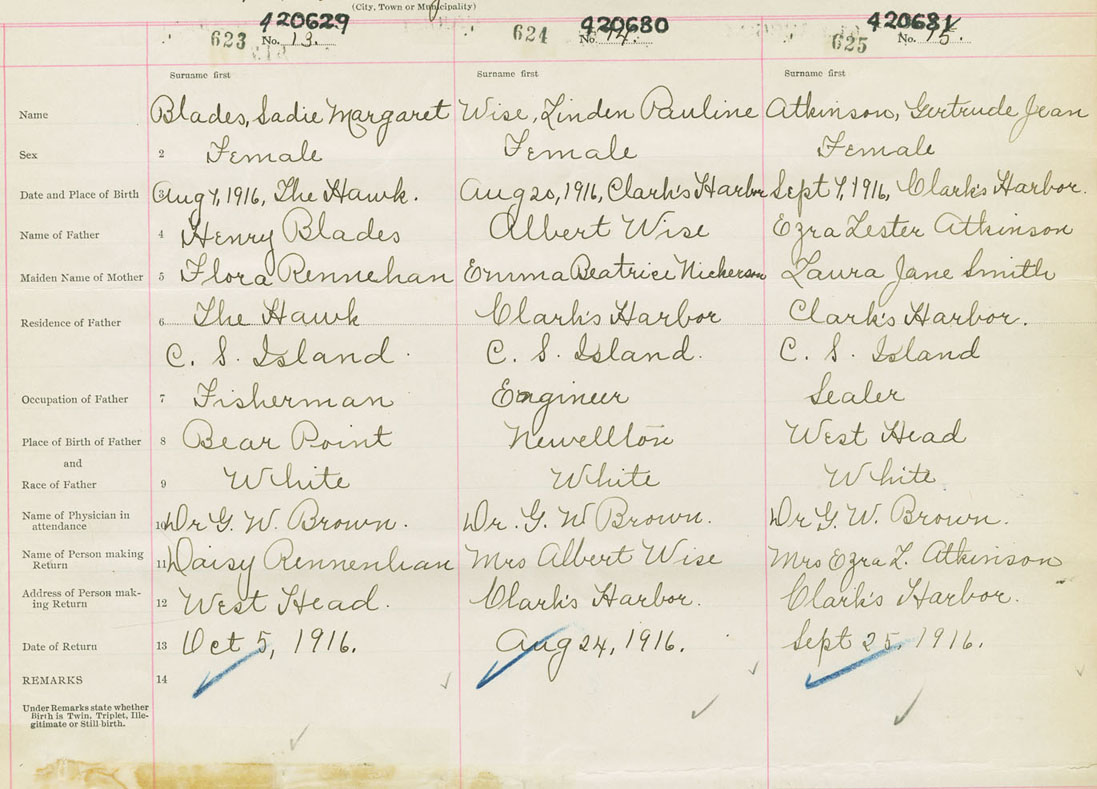 (City, Town or Municipality)
420629 420680 420681
623 No. 13. 624 No. 14. 625 No. 15.
Surname first Surname first Surname first
Name Blades, Sadie Margaret Wise, Linden Pauline Atkinson, Gertrude Jean
Sex 2 Female Female Female
Date and Place of Birth 3 Aug 7, 1916, The Hawk. Aug 20, 1916, Clark's Harbor Sept 7, 1916, Clark's Harbor.
Name of Father 4 Henry Blades Albert Wise Ezra Lester Atkinson
Maiden Name of Mother 5 Flora Rennehan Emma Beatrice Nickerson Laura Jane Smith
Residence of Father 6 The Hawk Clark's Harbor Clark's Harbor.
C. S. Island. C. S. Island. C. S. Island
Occupation of Father 7 Fisherman Engineer Sealer
Place of Birth of Father 8 Bear Point Newellton West Head
and
Race of Father 9 White White White
Name of Physician in attendance 10 Dr G. W. Brown. Dr. G. W Brown. Dr G. W. Brown.
Name of Person making Return 11 Daisy Rennenhan Mrs Albert Wise Mrs Ezra L. Atkinson
Address of Person making Return 12 West Head. Clark's Harbor. Clark's Harbor.
Date of Return 13 Oct 5, 1916. Aug 24, 1916. Sept 25, 1916.
REMARKS 14
Under Remarks state whether
Birth is Twin, Triplet, Ille-
gitimate or Still birth.